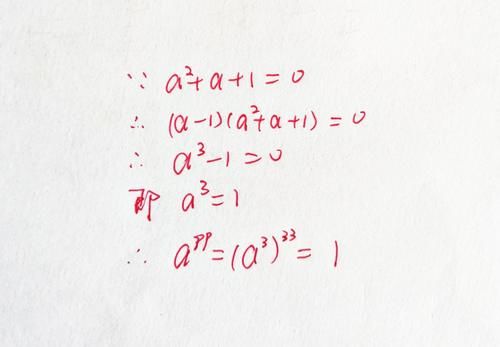 ∵ a²+a+1=0
∴ (a-1)(a²+a+1)=0
∴ a³-1=0
即 a³=1
∴ a⁹⁹=(a³)³³=1